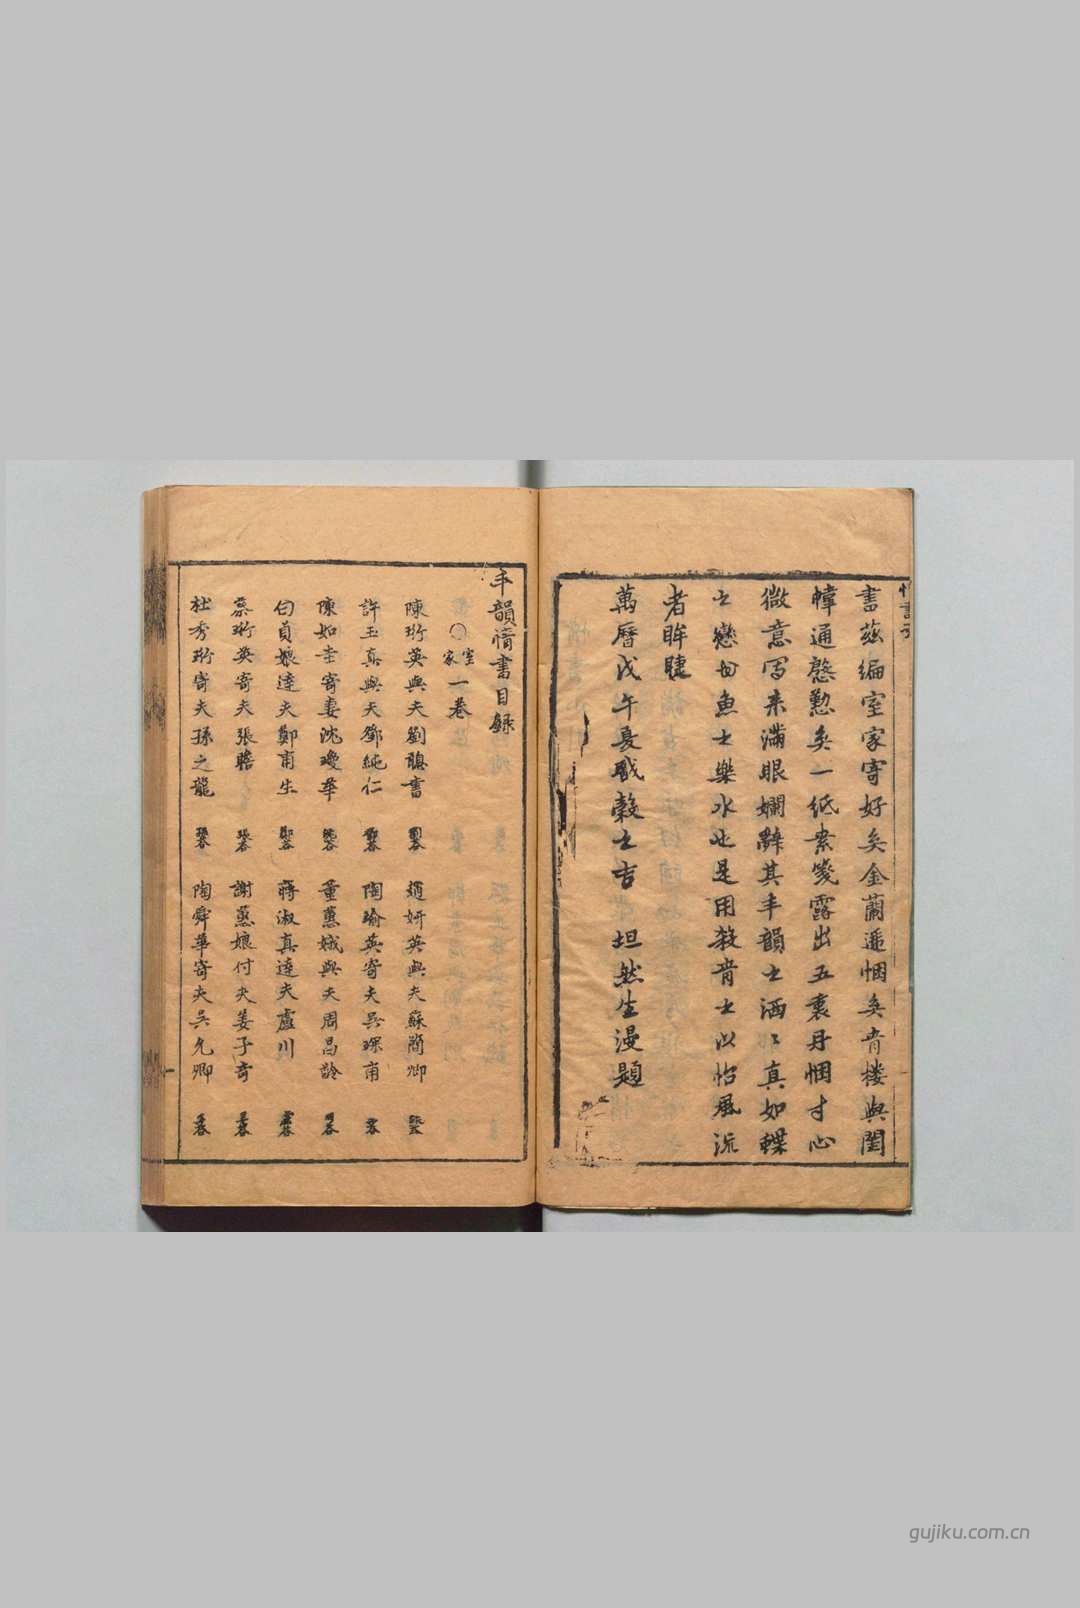 書茲編室家寄好矣金蘭遞悃矣青樓與閨
幃通慇懃矣一紙素箋露出五裏丹悃寸心
微意寫來滿眼斕辭其丰韻士洒〻真如蝶
之戀由魚士樂水也是用殺青士以怡風流
者眸睫
萬曆戊午夏戬穀之吉 坦然生漫題
丰韻情書目錄
○室家一卷
陳珩英與夫劉聰書 劉答 趙妍英與夫蘇簡卿
許玉真與夫鄧純仁 鄧答 陶瑜英寄夫吳琛甫 吳答
陳如圭寄妻沈瓊華 沈答 童蕙娥與夫周昌齡 周答
白貞娘達夫鄭甫生 鄭答 蔣淑真達夫盧川 盧答
蔡珩英寄夫張瞻 張答 謝蕙娘付夫姜子奇 姜答
杜秀珩寄夫孫之龍 孫答 陶舜華寄夫吳允卿 吳答
gujiku.com.cn